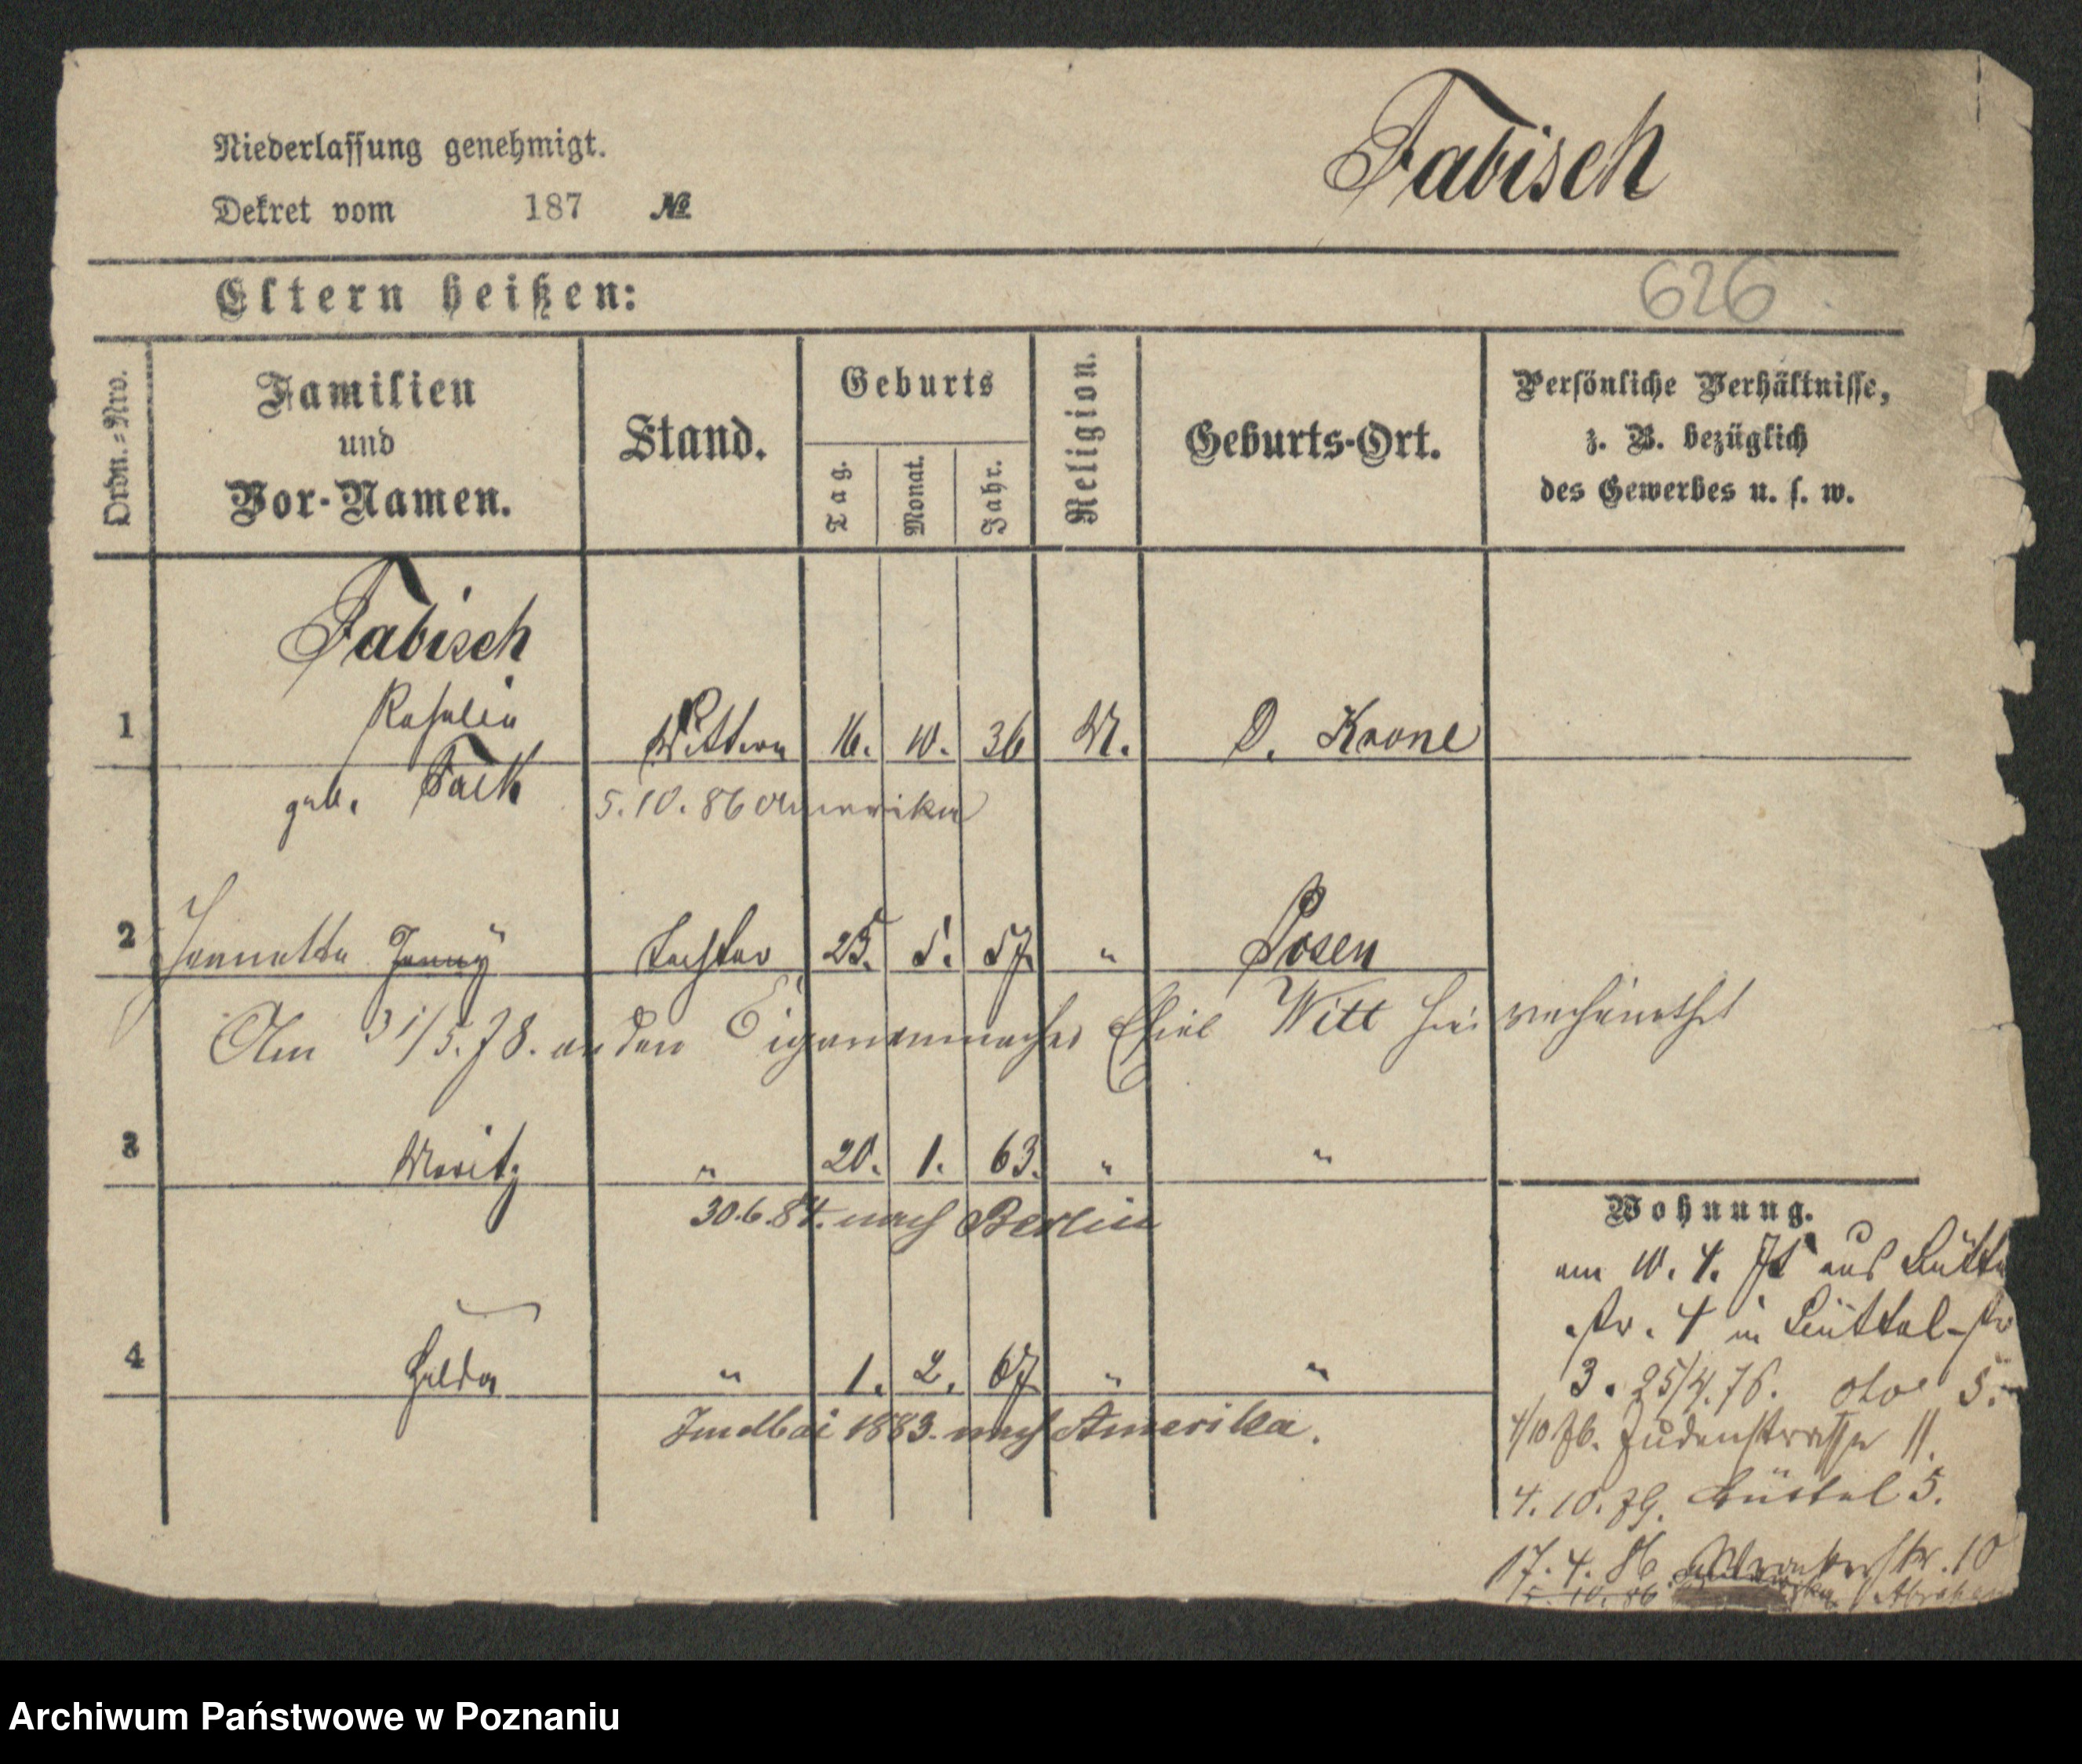 Fabisch
Niederlassung genehmigt.
Dekret vom 187 №
626
Eltern heißen:
Ordn.=Nro.
Familien
und
Vor-Namen.
Stand.
Geburts
Tag.
Monat.
Jahr.
Religion.
Geburts-Ort.
Persönliche Verhältnisse,
z. B. bezüglich
des Gewerbes u. s. w.
Fabisch
1 Rosalie Wittwe 16. 10. 36 M. D. Krone
geb. Falk 5.10.86 Amerika
2 Jeannette Jenny Tochter 25. 5. 57. " Posen
Am 31/5.78. an den Cigarrenmacher Witt hier verheirathet
3 Moritz " 20. 1. 63. " "
30.6.84. nach Berlin
4 Hulda " 1. 2. 67 " "
1883. nach Amerika.
Wohnung.
am 10. 4. aus Büttel
str. 4 in Büttel-str
3. 25/4.76. 5.
4/10 76. Judenstrasse 11.
4. 10. 79. Büttel 5.
17. 4. 86 Wronkerstr. 10
5. 10. 86.
Archiwum Państwowe w Poznaniu